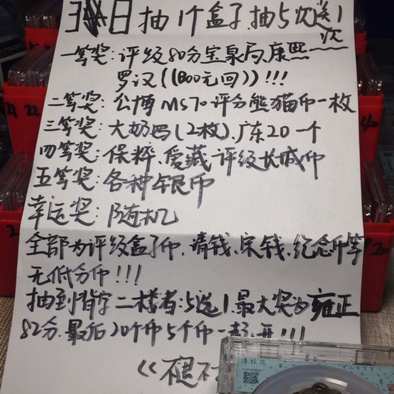 31日抽1个盒子.抽5次送1次
一等奖:评级80分宝泉局康熙
罗汉((1800元回))!!!
二等奖:公博MS70评分熊猫币一枚
三等奖:大奶妈(2枚).广东20一个
四等奖:保粹.爱藏.评级长城币
五等奖:各种银币
幸运奖:随机
全部为评级盒子币.清钱.宋钱.纪念币等
无低分币!!!
抽到背字二楼者:5选1.最大奖为雍正
82分.最后20个币5个币一起开!!!